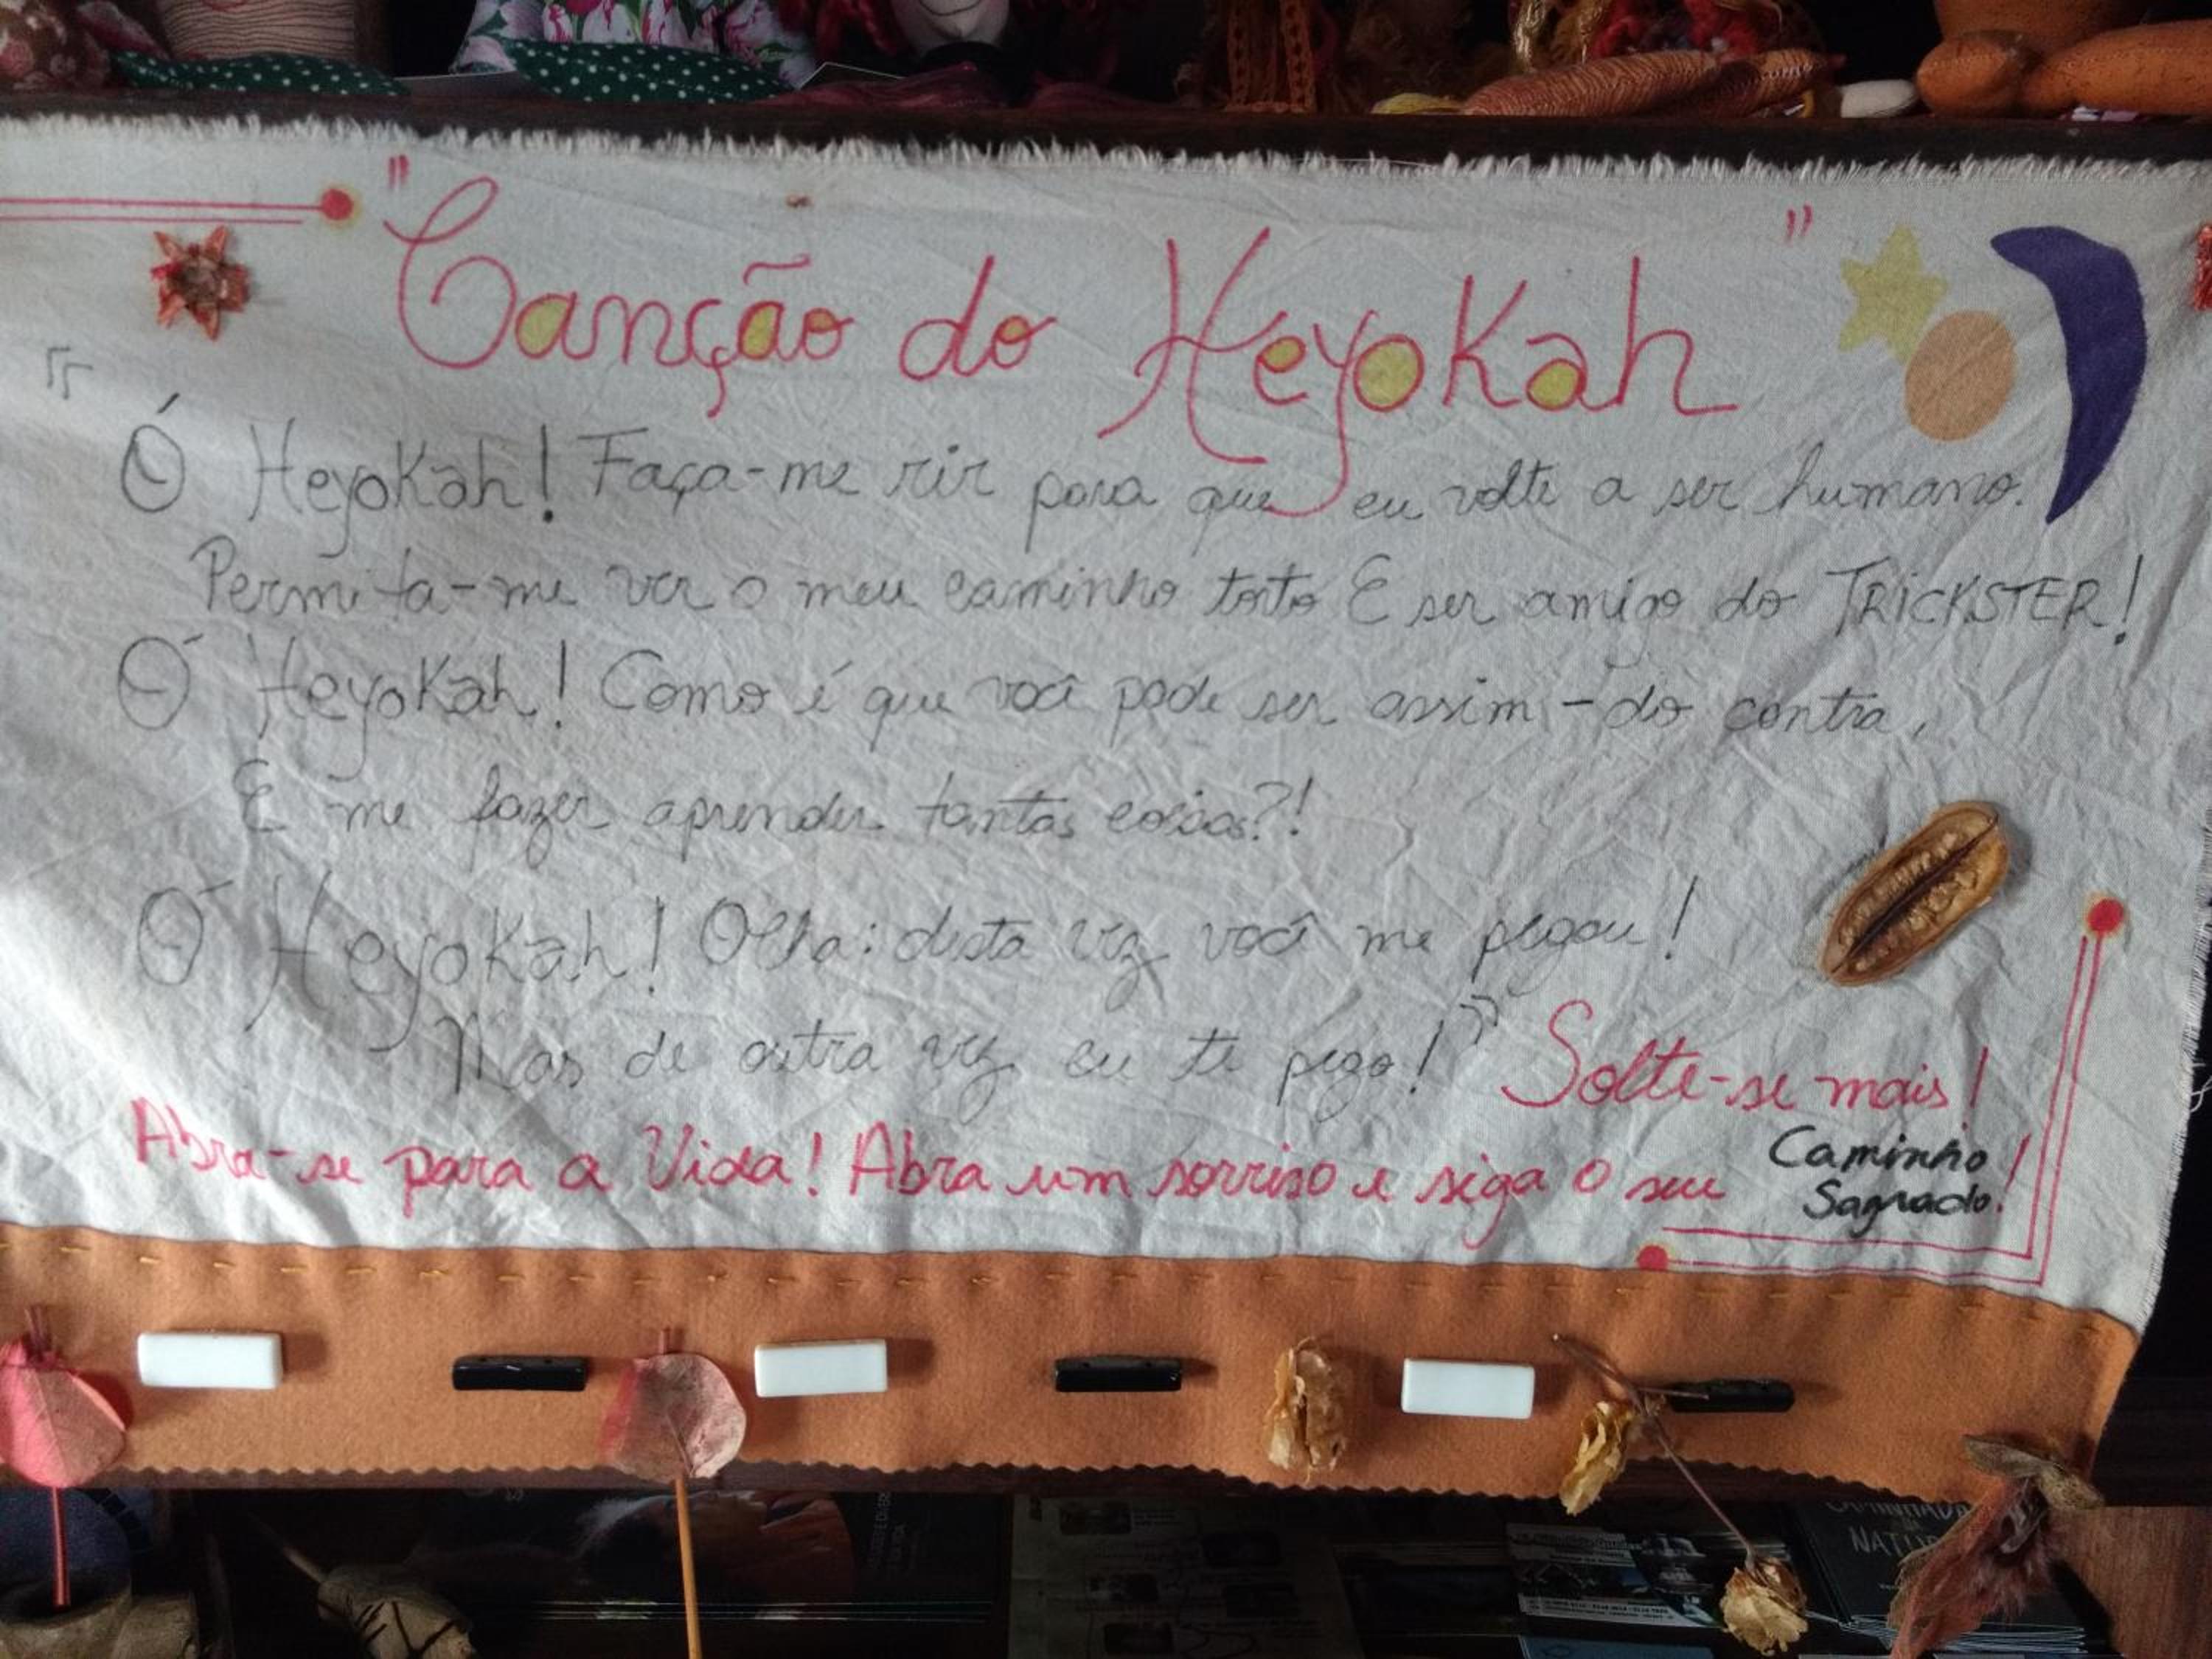 "Canção do Heyokah"
"Ó Heyokah! Faça-me rir para que eu volte a ser humano.
Permita-me ver o meu caminho torto E ser amigo do TRICKSTER!
Ó Heyokah! Como é que você pode ser assim - do contra,
E me fazer aprender tantas coisas?!
Ó Heyokah! Olha: desta vez você me pegou!
Mas de outra vez eu te pego!" Solte-se mais!
Abra-se para a Vida! Abra um sorriso e siga o seu Caminho Sagrado!
CAMINHADA